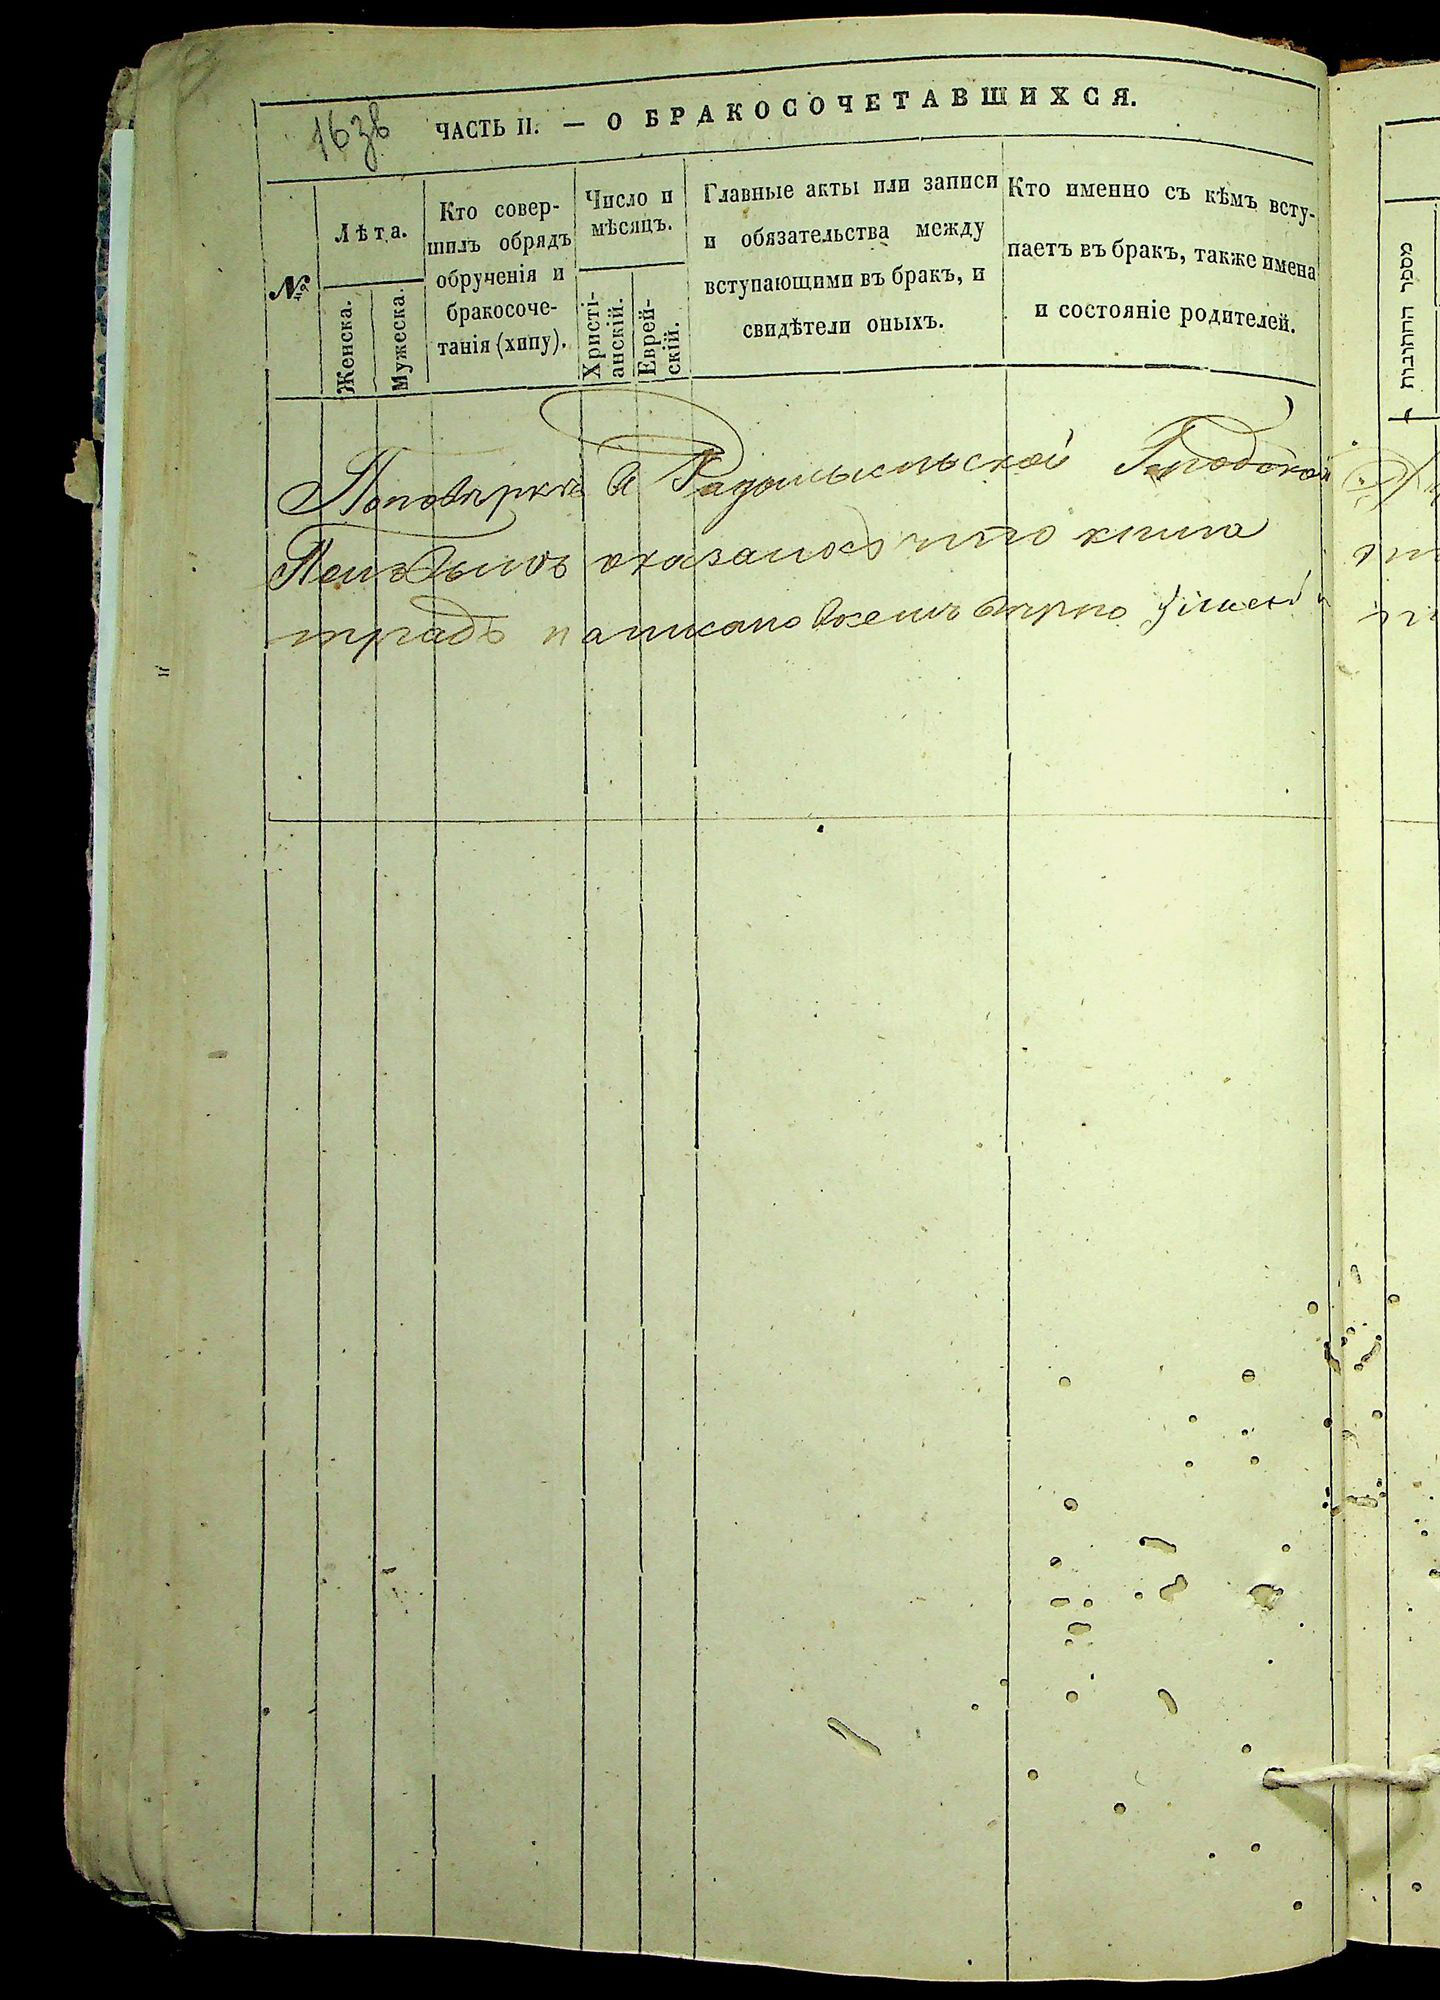 163в
ЧАСТЬ II. — О БРАКОСОЧЕТАВШИХСЯ.
№
Лѣта.
Женска.
Мужеска.
Кто совер-
шилъ обрядъ
обрученія и
бракосоче-
танія (хипу).
Число и
мѣсяцъ.
Христі-
анскій.
Еврей-
скій.
Главные акты или записи
и обязательства между
вступающими въ бракъ, и
свидѣтели оныхъ.
Кто именно съ кѣмъ всту-
паетъ въ бракъ, также имена
и состояніе родителей.
Поповѣркѣ в Радомысльской Городской
оказалось что книга
написано вѣрно
מספר החתונות